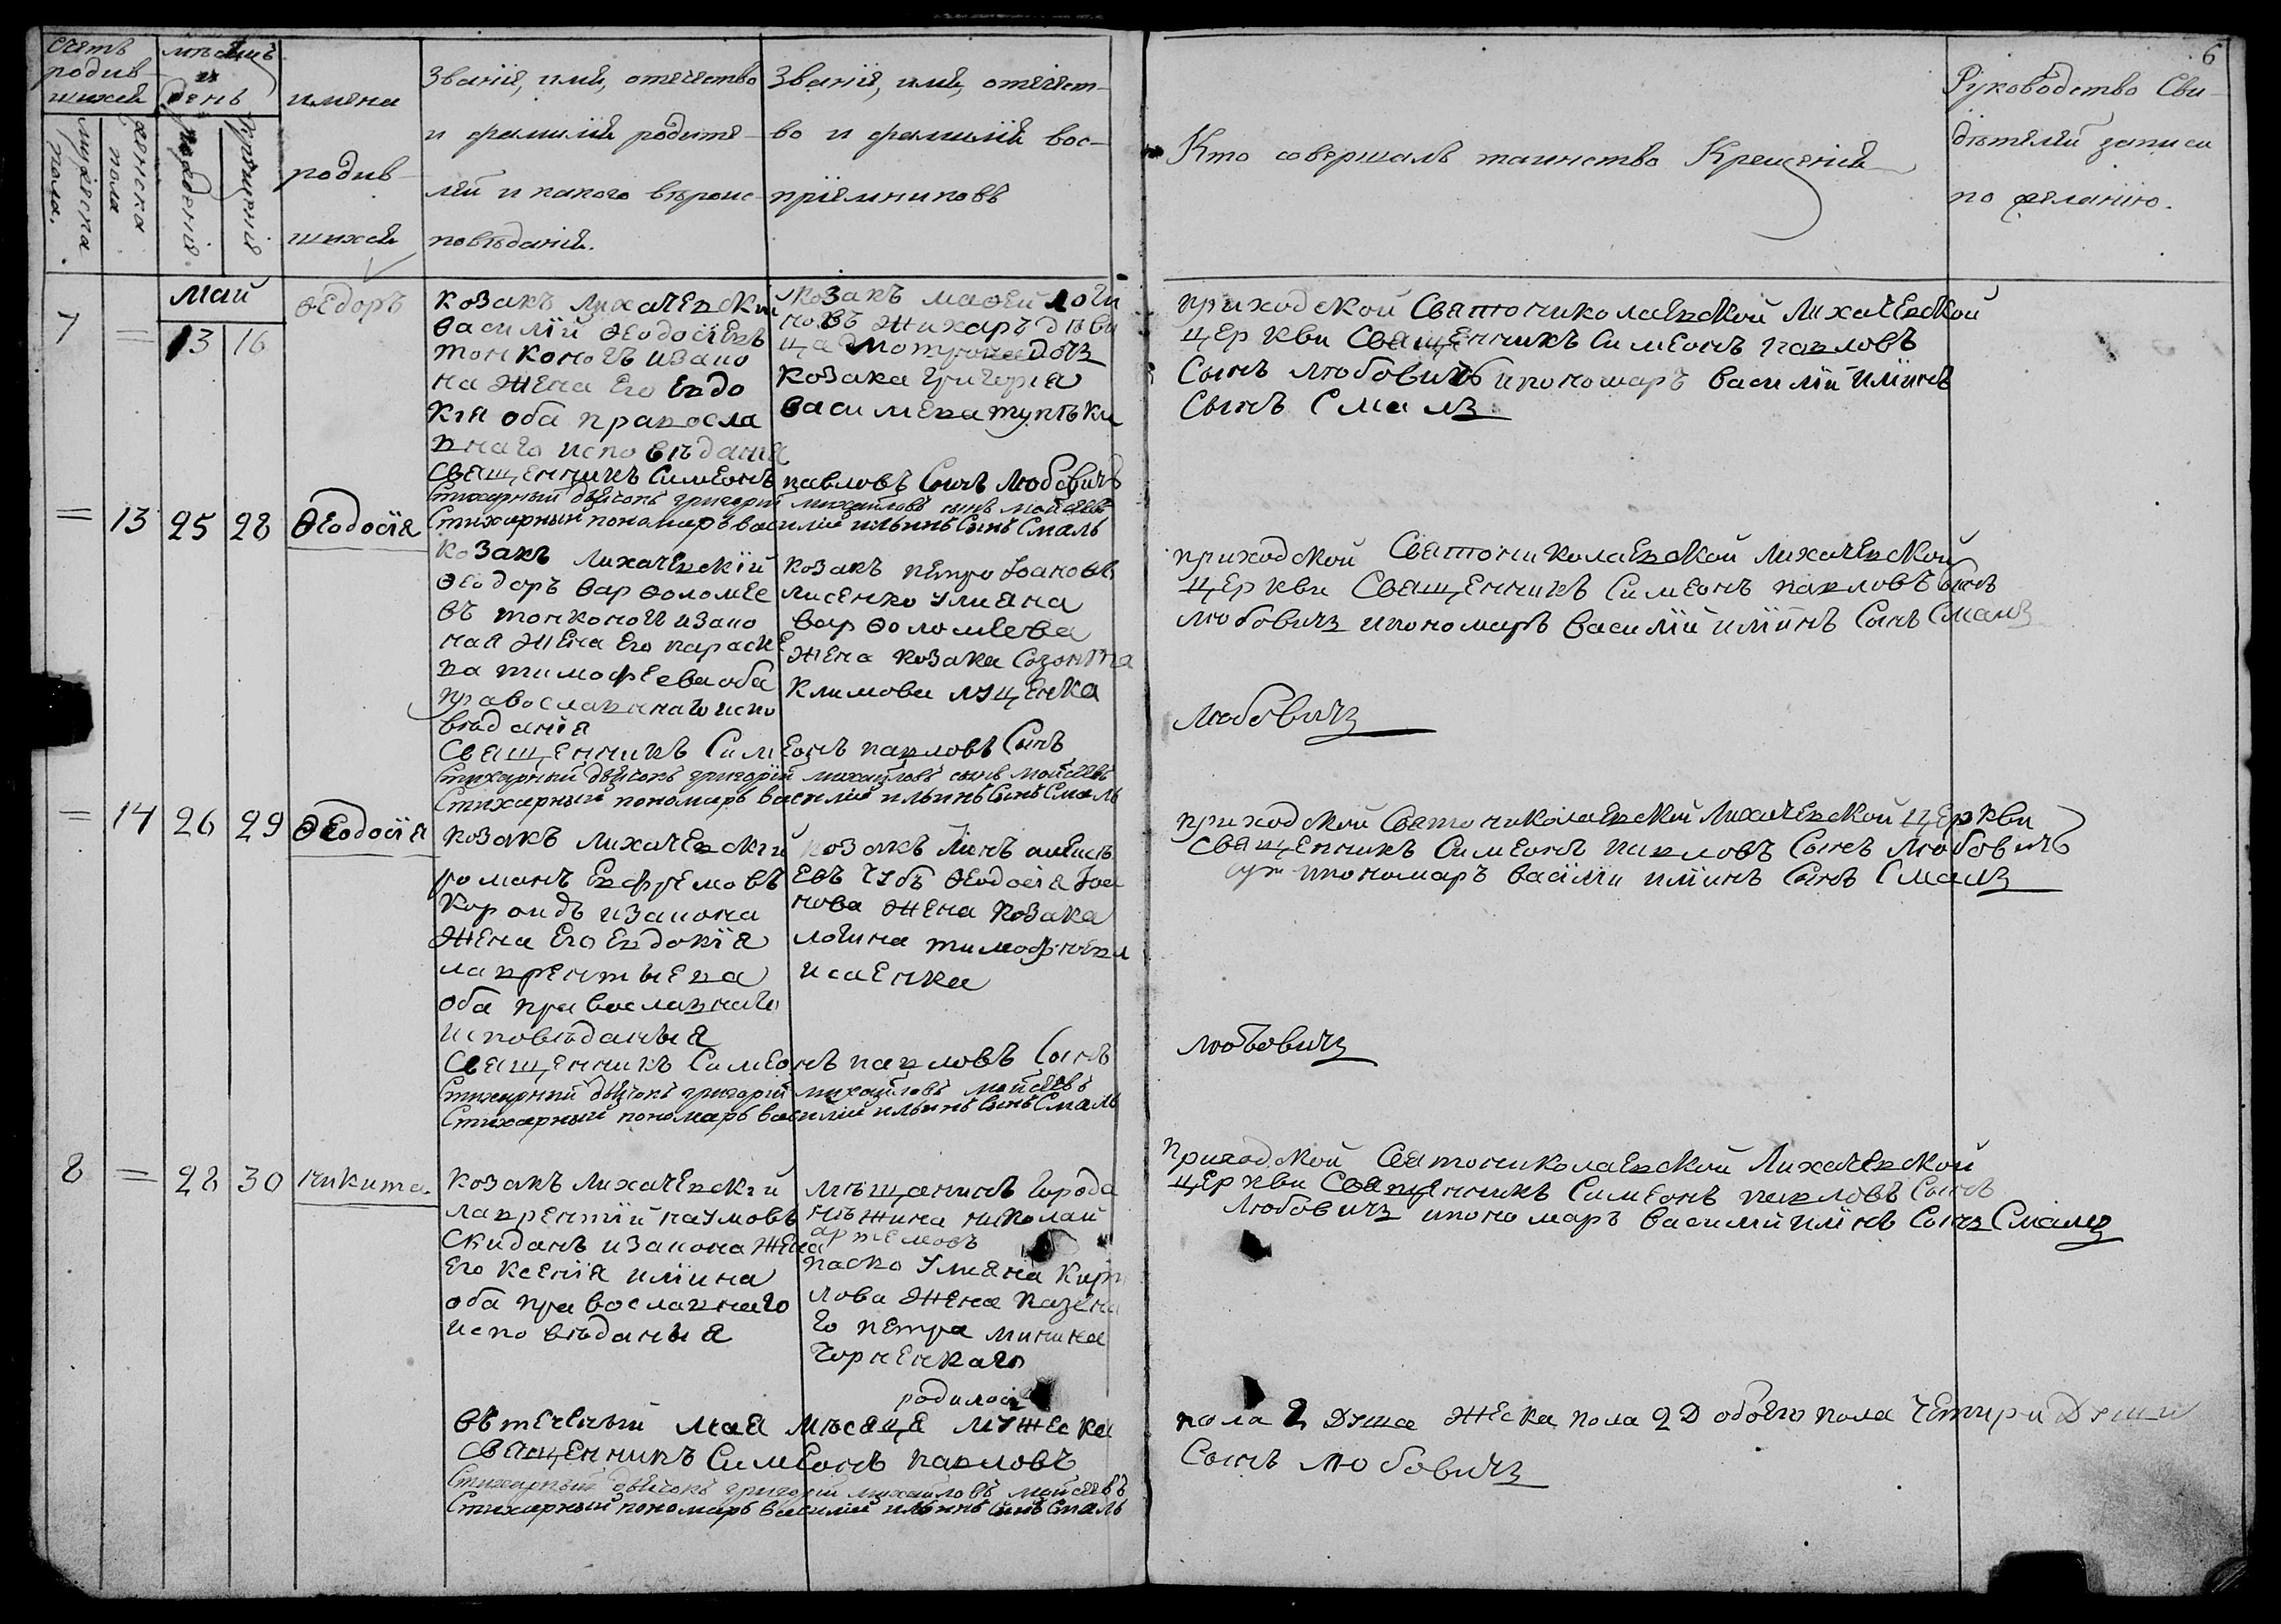 6
Счетъ
родив-
шихся
мѣсяцъ
и
день
имена
родив-
шихся
Званіе, имя, отечество
и фамилія родите-
лей и какого вѣроис-
повѣданія.
Званіе, имя, отечест-
во и фамилія вос-
пріемниковъ
Кто совершалъ таинство Крещенія
Руководство Сви-
дѣтелей записи
по желанію.
мужеска
пола.
женска
пола
рожденія.
крещенія
Май
7 = 13 16 Ѳедоръ
козакъ лихачевски
василій Ѳеодосіевъ
тонконогъ изако
на жена его евдо
кія оба правосла
внаго исповѣданія
козакъ маѳей логи
новъ жихаръ дѣви
ца дочъ
козака григорія
василева
приходской Святониколаевской Лихачевской
церкви Священникъ Симеонъ павловъ
Сынъ любовичъ ипономаръ василій иліинъ
Сынъ Смалъ
Священникъ Симеонъ павловъ Сынъ Любовичъ
Стихарный дьячокъ григорій михайловъ сынъ мойсеевъ
Стихарный пономарь василій ильинъ Сынъ Смаль
= 13 25 28 Ѳеодосія
козакъ лихачевскій
Ѳеодоръ варѳоломее
въ тонконогъ изако
ная жена его параске
ва тимофеева оба
православнаго испо
вѣданія
козакъ петро Іоановъ
лисенко Улияна
варѳоломеева
жена козака Созонта
климова луценка
приходской Святониколаевской лихачевской
церкви Священникъ Симеонъ павловъ сынъ
любовичъ ипономаръ василій иліинъ Сынъ Смалъ
любовичъ
Священникъ Симеонъ павловъ Сынъ
Стихарный дьячокъ григорій михайловъ сынъ мойсеевъ
Стихарный пономарь василій ильинъ Сынъ Смаль
= 14 26 29 Ѳеодосія
козакъ лихачевскій
романъ Ефремовъ
изакона
жена его евдокія
лаврентьева
оба православнаго
исповѣданыя
козакъ алексѣ
евъ чубъ Ѳеодосія Іоа
нова жена козака
логина тимофѣева
исаенка
приходской Святониколаевской Лихачевской церкви
священникъ Симеонъ павловъ Сынъ Любовичъ
ипономаръ васіліи иліинъ Сынъ Смалъ
любовичъ
Священникъ Симеонъ павловъ Сынъ
Стихарный дьячокъ григорій михайловъ мойсеевъ
Стихарный пономарь василій ильинъ Сынъ Смаль
8 = 28 30 никита
козакъ лихачевскій
лаврентій наумовъ
Скиданъ изакона жена
его ксенія иліина
оба православнаго
исповѣданыя
мѣщанинъ города
нѣжина николай
артемовъ
паско Улияна кири
лова жена казена
го петра минина
Чорненкаго
приходской Святониколаевской Лихачевской
церкви Священникъ Симеонъ павловъ Сынъ
Любовичъ ипономаръ василій иліинъ Сынъ Смалъ
родилося
въ теченыи мая мѣсяця мужеска пола 2 душа жеска пола 2 Д обоего пола Четири Души
Священникъ Симеонъ павловъ Сынъ любовичъ
Стихарный дьячокъ григорій михайловъ мойсеевъ
Стихарный пономарь василій ильинъ Сынъ Смаль